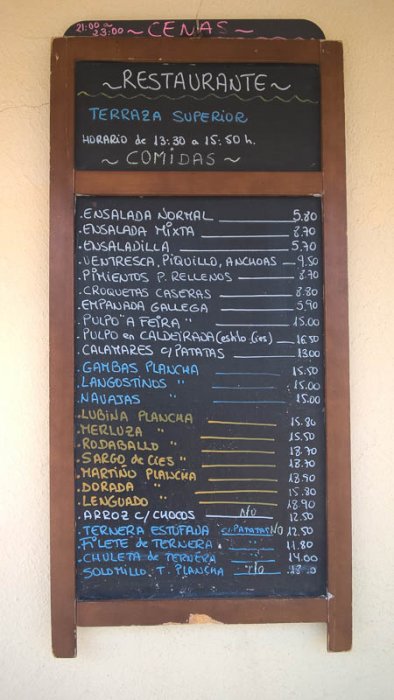 21:00 a
23:00 ~ CENAS ~
~RESTAURANTE~
TERRAZA SUPERIOR
HORARIO de 13:30 a 15:50 h.
~ COMIDAS ~
.ENSALADA NORMAL 5.80
.ENSALADA MIXTA 8.70
.ENSALADILLA 5.70
.VENTRESCA, PIQUILLO, ANCHOAS 9.50
.PIMIENTOS P. RELLENOS 8.70
.CROQUETAS CASERAS 8.80
.EMPANADA GALLEGA 5.90
.PULPO "A FEIRA" 15.00
.PULPO en CALDEIRADA (estilo Cíes) 16.50
.CALAMARES C/PATATAS 13.00
.GAMBAS PLANCHA 15.50
.LANGOSTINOS " 15.00
.NAVAJAS " 15.00
.LUBINA PLANCHA 15.80
.MERLUZA " 15.50
.RODABALLO " 18.70
.SARGO de CIES " 18.70
.MARTIÑO PLANCHA 18.90
.DORADA " 15.80
.LENGUADO " 18.90
.ARROZ C/CHOCOS NO 12.50
.TERNERA ESTUFADA C/PATATAS NO 12.50
.FILETE de TERNERA 11.80
.CHULETA de TERNERA 14.00
.SOLOMILLO T. PLANCHA